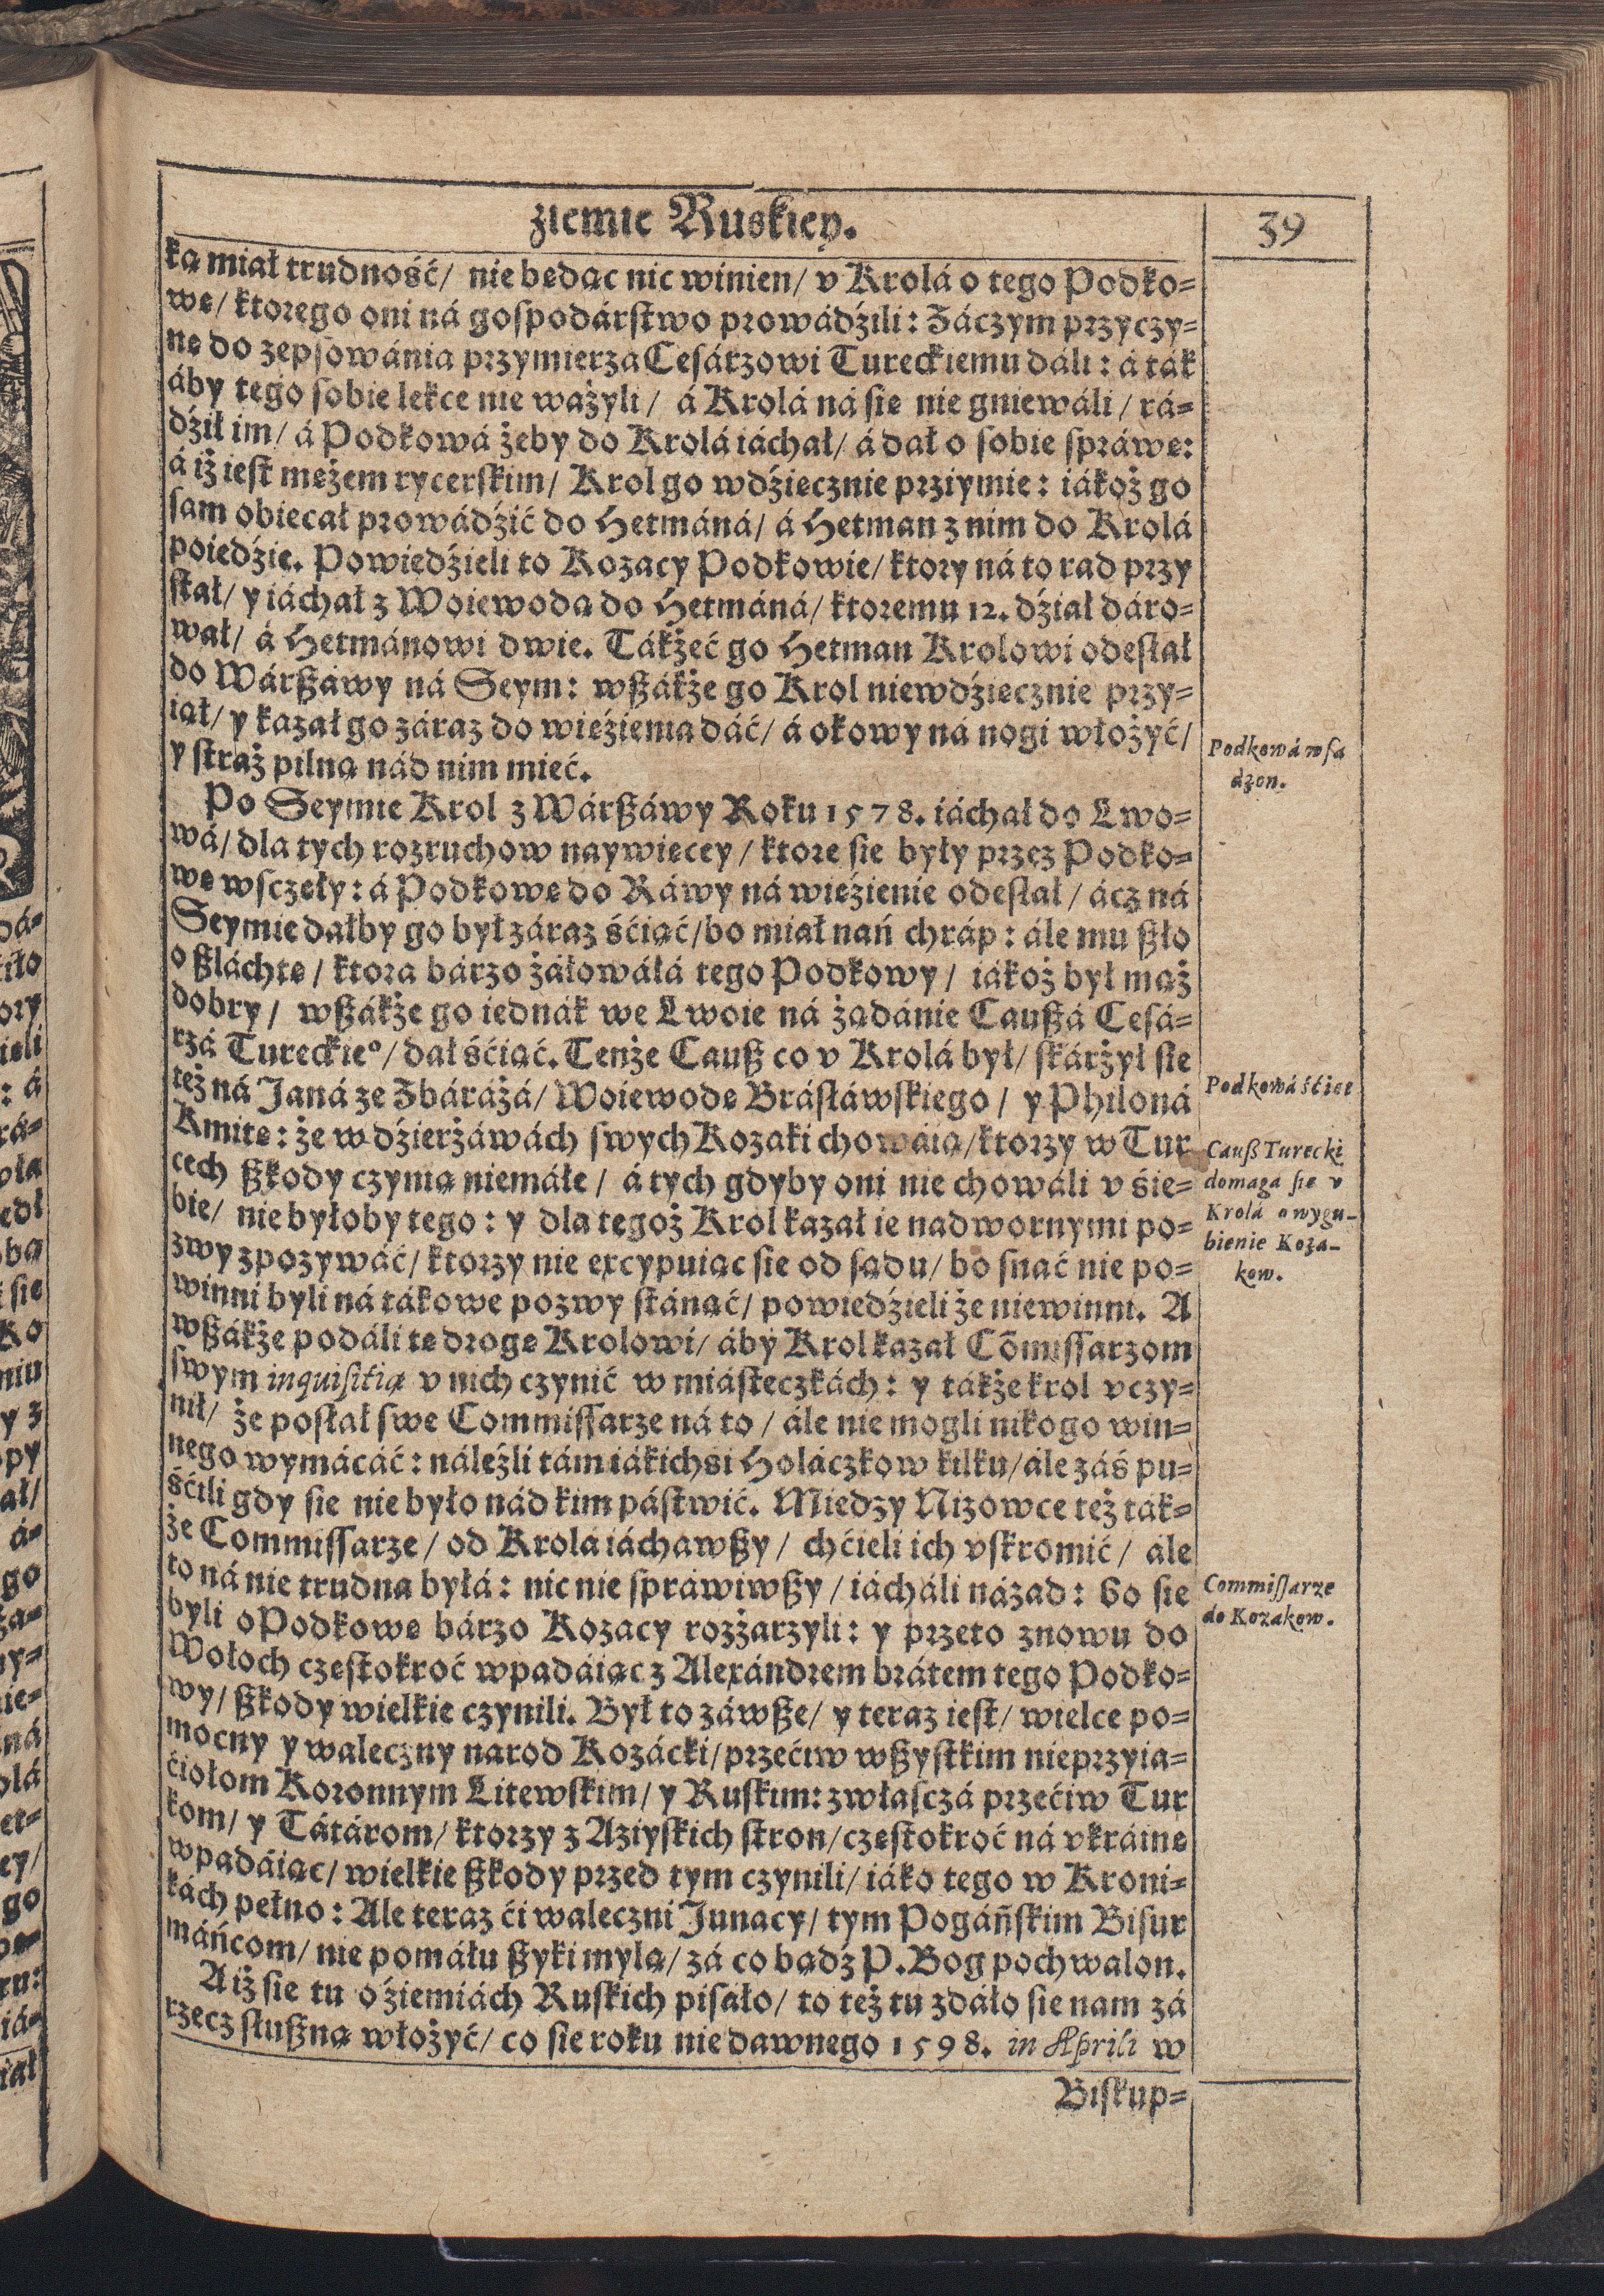 ziemie Ruskiey.
39
ką miał trudność/ nie będąc nic winien/ v Krolá o tego Podko⸗
wę/ ktorego oni ná gospodárstwo prowádźili: Záczym przyczy⸗
nę do zepsowánia przymierza Cesárzowi Tureckiemu dáli: á ták
áby tego sobie lekce nie ważyli/ á Krolá ná się nie gniewáli/ rá⸗
dźił im/ á Podkowá żeby do Krolá iáchał/ á dał o sobie spráwę:
á iż iest mężem rycerskim/ Krol go wdźięcznie prziymie: iákoż go
sam obiecał prowádźić do Hetmáná/ á Hetman z nim do Krolá
poiedźie. Powiedźieli to Kozacy Podkowie/ ktory ná to rad przy
stał/ y iáchał z Woiewodą do Hetmáná/ ktoremu 12. dźiał dáro⸗
wał/ á Hetmánowi dwie. Tákżeć go Hetman Krolowi odesłał
do Wárßáwy ná Seym: wßákże go Krol niewdźięcznie przy⸗
iął/ y kazał go záraz do więźienia dáć/ á okowy ná nogi włożyć/
y straż pilną nád nim mieć.
Podkowá wsa
dzon.
Po Seymie Krol z Wárßáwy Roku 1578. iáchał do Lwo⸗
wá/ dla tych rozruchow naywięcey/ ktore się były przez Podko⸗
wę wsczęły: á Podkowę do Ráwy ná więźienie odesłał/ ácz ná
Seymie dałby go był záraz śćiąć/ bo miał nań chráp: ále mu ßło
o ßláchtę/ ktora bárzo żáłowáłá tego Podkowy/ iákoż był mąż
dobry/ wßákże go iednák we Lwoie ná żądánie Caußá Cesá⸗
rzá Tureckieº/ dał śćiąć. Tenże Cauß co v Krolá był/ skárżył się
też ná Janá ze Zbáráżá/ Woiewodę Brásłáwskiego/ y Philoná
Podkowá śćięt
Kmitę: że w dźierżáwách swych Kozaki chowáią/ ktorzy w Tur
cech ßkody czynią niemáłe/ á tych gdyby oni nie chowáli v śie⸗
bie/ nie byłoby tego: y dla tegoż Krol kazał ie nadwornymi po⸗
zwy zpozywáć/ ktorzy nie excypuiąc się od sądu/ bo snać nie po⸗
winni byli ná tákowe pozwy stánąć/ powiedźieli że niewinni. A
Cauß Turecki
domaga się v
Krolá o wygu-
bienie Koza-
kow.
wßákże podáli tę drogę Krolowi/ áby Krol kazał Cõmissarzom
swym inquisitią v nich czynić w miásteczkách: y tákże krol vczy⸗
nił/ że posłał swe Commissarze ná to/ ále nie mogli nikogo win⸗
nego wymácáć: náleźli tám iákichsi Holáczkow kilku/ ále záś pu⸗
śćili gdy się nie było nád kim pástwić. Miedzy Nizowce też ták⸗
że Commissarze/ od Krolá iáchawßy/ chćieli ich vskromić/ ale
to ná nie trudna byłá: nic nie spráwiwßy/ iácháli názad: bo się
byli o Podkowę bárzo Kozacy rozżarzyli: y przeto znowu do
Commissarze
do Kozakow.
Wołoch częstokroć wpadáiąc z Alexándrem brátem tego Podko⸗
wy/ ßkody wielkie czynili. Był to záwße/ y teraz iest/ wielce po⸗
mocny y waleczny narod Kozácki/ przećiw wßystkim nieprzyia⸗
ćiołom Koronnym Litewskim/ y Ruskim: zwłasczá przećiw Tur
kom/ y Tátárom/ ktorzy z Aziyskich stron/ częstokroć ná vkráinę
wpadáiąc/ wielkie ßkody przed tym czynili/ iáko tego w Kroni⸗
kách pełno: Ale teraz ći waleczni Junacy/ tym Pogáñskim Bisur
máńcom/ nie pomáłu ßyki mylą/ zá co bądź P. Bog pochwalon.
A iż się tu o źiemiách Ruskich pisáło/ to też tu zdáło się nam zá
rzecz słußną włożyć/ co się roku nie dawnego 1598. in Aprili w
Biskup⸗